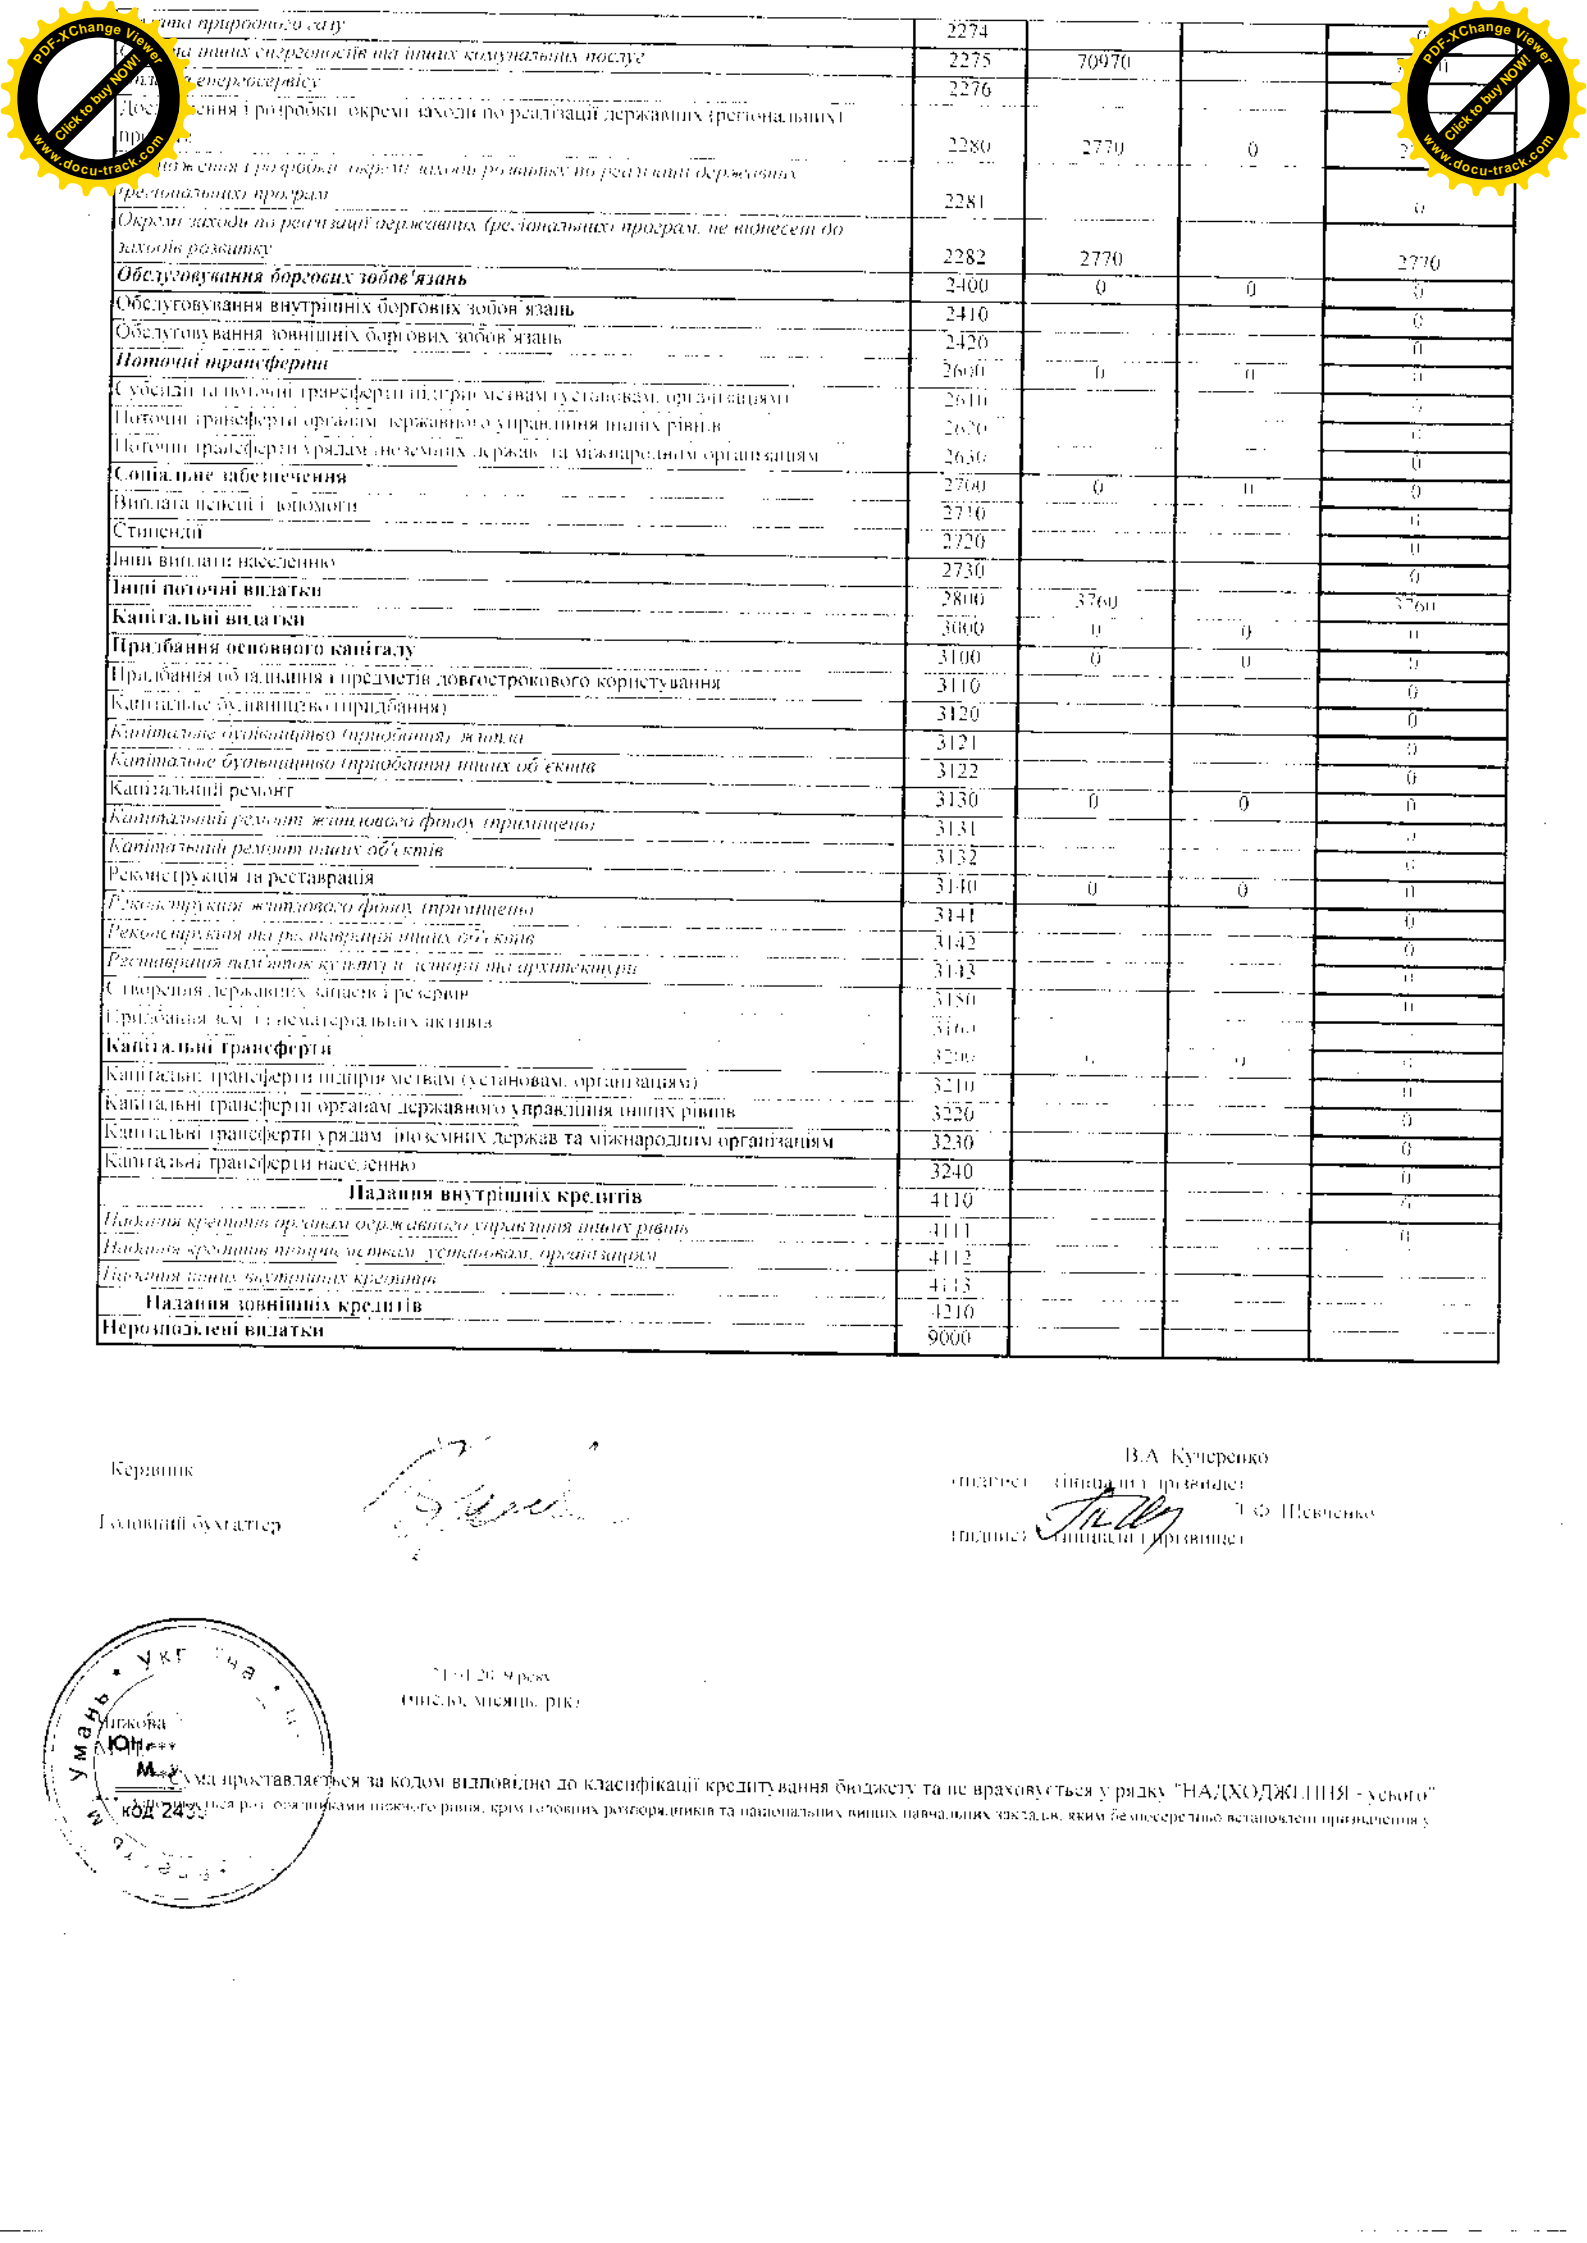 природного газу 2274
інших енергоносіїв та інших комунальних послуг 2275 70970
енергосервісу 2276
Дослідження і розробки, окремі заходи по реалізації державних (регіональних)
2280 2770 0
і розробки, окремі заходи розвитку по реалізації державних
(регіональних) програм 2281 0
Окремі заходи по реалізації державних (регіональних) програм, не віднесені до
заходів розвитку 2282 2770 2770
Обслуговування боргових зобов'язань 2400 0 0 0
Обслуговування внутрішніх боргових зобов'язань 2410 0
Обслуговування зовнішніх боргових зобов'язань 2420 0
Поточні трансферти 2600 0 0 0
Субсидії та поточні трансферти підприємствам (установам, організаціям) 2610 0
Поточні трансферти органам державного управління інших рівнів 2620 0
Поточні трансферти урядам іноземних держав та міжнародним організаціям 2630 0
Соціальне забезпечення 2700 0 0 0
Виплата пенсій і допомоги 2710 0
Стипендії 2720 0
Інші виплати населенню 2730 0
Інші поточні видатки 2800 3760 3760
Капітальні видатки 3000 0 0 0
Придбання основного капіталу 3100 0 0 0
Придбання обладнання і предметів довгострокового користування 3110 0
Капітальне будівництво (придбання) 3120 0
Капітальне будівництво (придбання) житла 3121 0
Капітальне будівництво (придбання) інших об'єктів 3122 0
Капітальний ремонт 3130 0 0 0
Капітальний ремонт житлового фонду (приміщень) 3131 0
Капітальний ремонт інших об'єктів 3132 0
Реконструкція та реставрація 3140 0 0 0
Реконструкція житлового фонду (приміщень) 3141 0
Реконструкція та реставрація інших об'єктів 3142 0
Реставрація пам'яток культури, історії та архітектури 3143 0
Створення державних запасів і резервів 3150 0
Придбання землі і нематеріальних активів 3160
Капітальні трансферти 3200 0 0 0
Капітальні трансферти підприємствам (установам, організаціям) 3210 0
Капітальні трансферти органам державного управління інших рівнів 3220 0
Капітальні трансферти урядам іноземних держав та міжнародним організаціям 3230 0
Капітальні трансферти населенню 3240 0
Надання внутрішніх кредитів 4110 0
Надання кредитів органам державного управління інших рівнів 4111 0
Надання кредитів підприємствам, установам, організаціям 4112
Надання інших внутрішніх кредитів 4113
Надання зовнішніх кредитів 4210
Нерозподілені видатки 9000
Керівник В.А. Кучеренко
(підпис) (ініціали і прізвище)
Головний бухгалтер Шевченко
(підпис) (ініціали і прізвище)
(число, місяць, рік)
Умань
код
Сума проставляється за кодом відповідно до класифікації кредитування бюджету та не враховується у рядку "НАДХОДЖЕННЯ - усього"
розпорядниками нижчого рівня, крім головних розпорядників та національних вищих навчальних закладів, яким безпосередньо встановлені призначення у
PDF-XChange Viewer
Click to buy NOW!
www.docu-track.com
PDF-XChange Viewer
Click to buy NOW!
www.docu-track.com